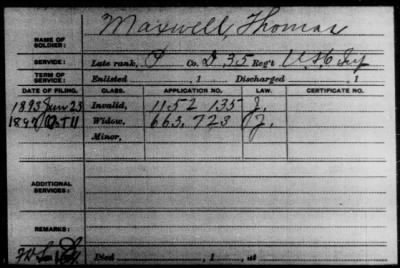 Maxwell, Thomas
NAME OF SOLDIER:
SERVICE: Late rank, P Co. D 35 Reg't U.S.C Inf
TERM OF SERVICE: Enlisted , 1 Discharged , 1
DATE OF FILING. CLASS. APPLICATION NO. LAW. CERTIFICATE NO.
1893 Jun 23 Invalid, 1152 135 J.
Oct 11 Widow, 663,723 J.
Minor,
ADDITIONAL SERVICES:
REMARKS:
Died , 1 , at